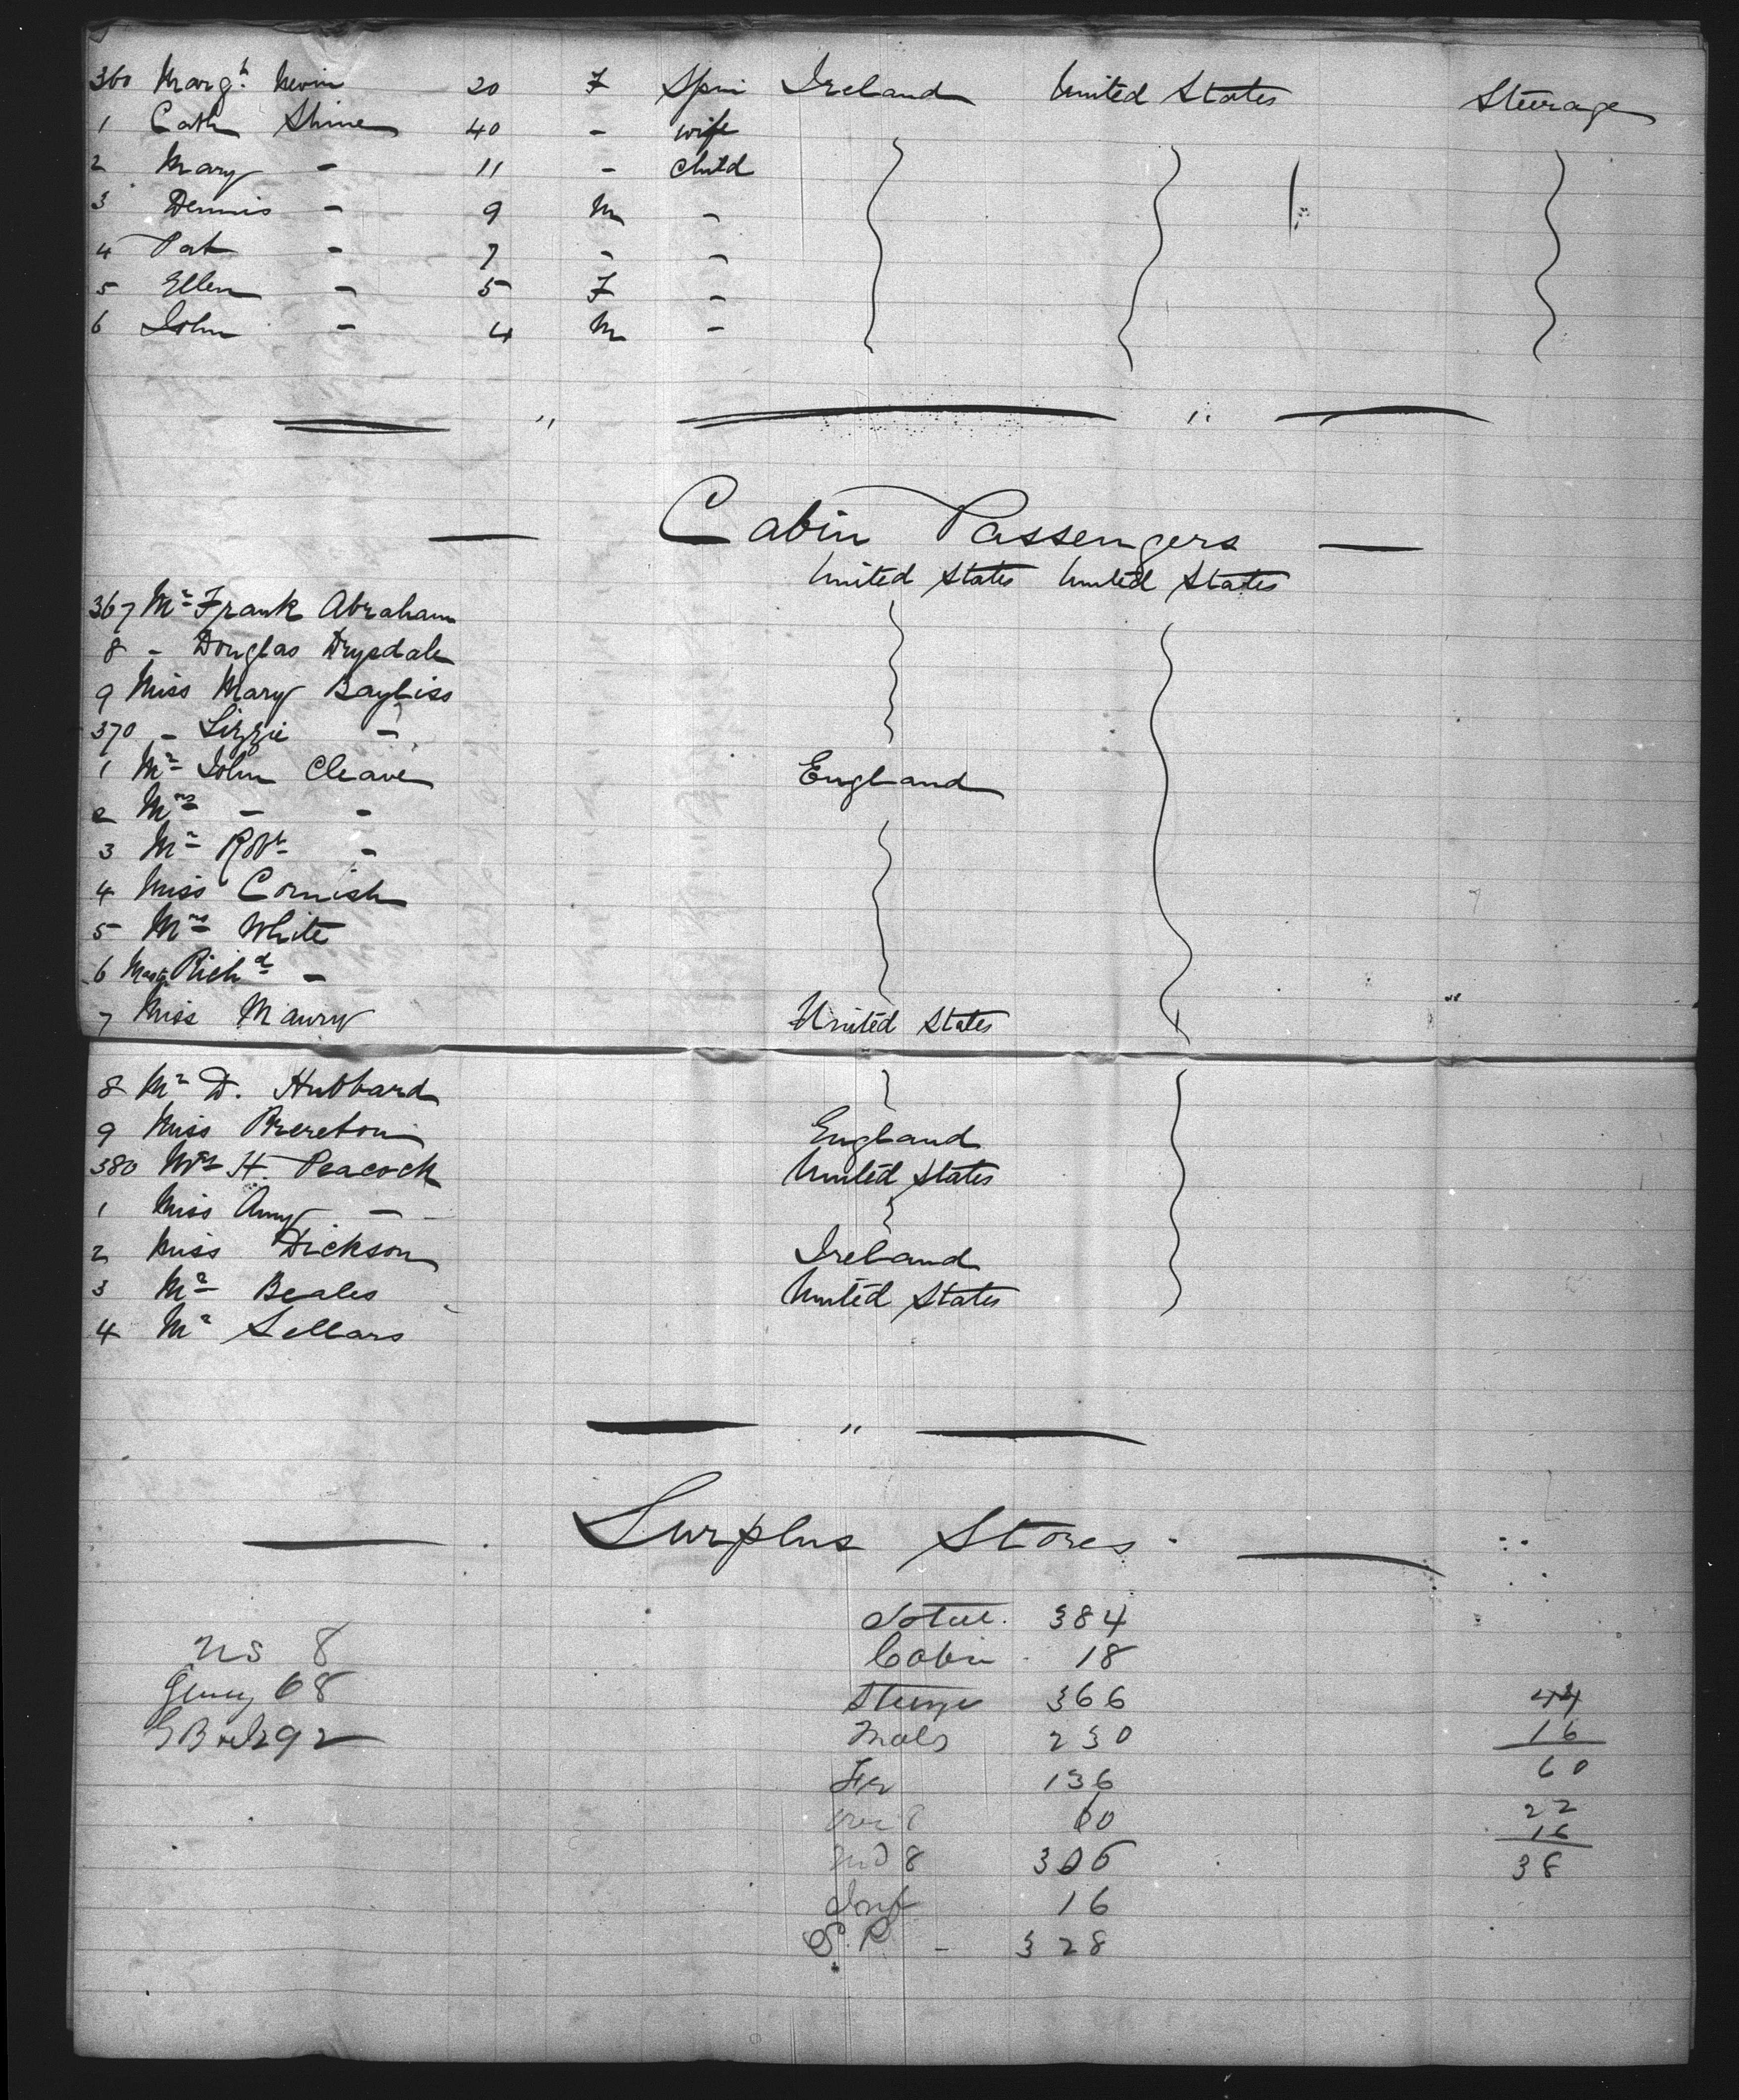 360 Margt. Nevin 20 F Spin Ireland United States Steerage
1 Cath Shine 40 - wife
2 Mary - 11 - child
3 Dennis - 9 M -
4 Pat - 7 - -
5 Ellen - 5 F -
6 John - 4 M -
Cabin Passengers
United States United States
367 Mr Frank Abraham
8 - Douglas Drysdale
9 Miss Mary Bayliss
370 - Lizzie -
1 Mr John Cleave England
2 Mrs - -
3 Mr Robt -
4 Miss Cornish
5 Mrs White
6 Mast Richd -
7 Miss Maury United States
8 Mr D. Hubbard
9 Miss Brereton England
380 Mrs H. Peacock United States
1 Miss Amy -
2 Miss Dickson Ireland
3 Mr Beales United States
4 Mr Sellars
Surplus Stores
Total. 384
US 8 Cabin 18
Gemy 68 Steerge 366 44
GB & I 292 Mals 230 16
Fer 136 60
over 8 60 22
und 8 306 16
Inf 16 38
S. P. - 328